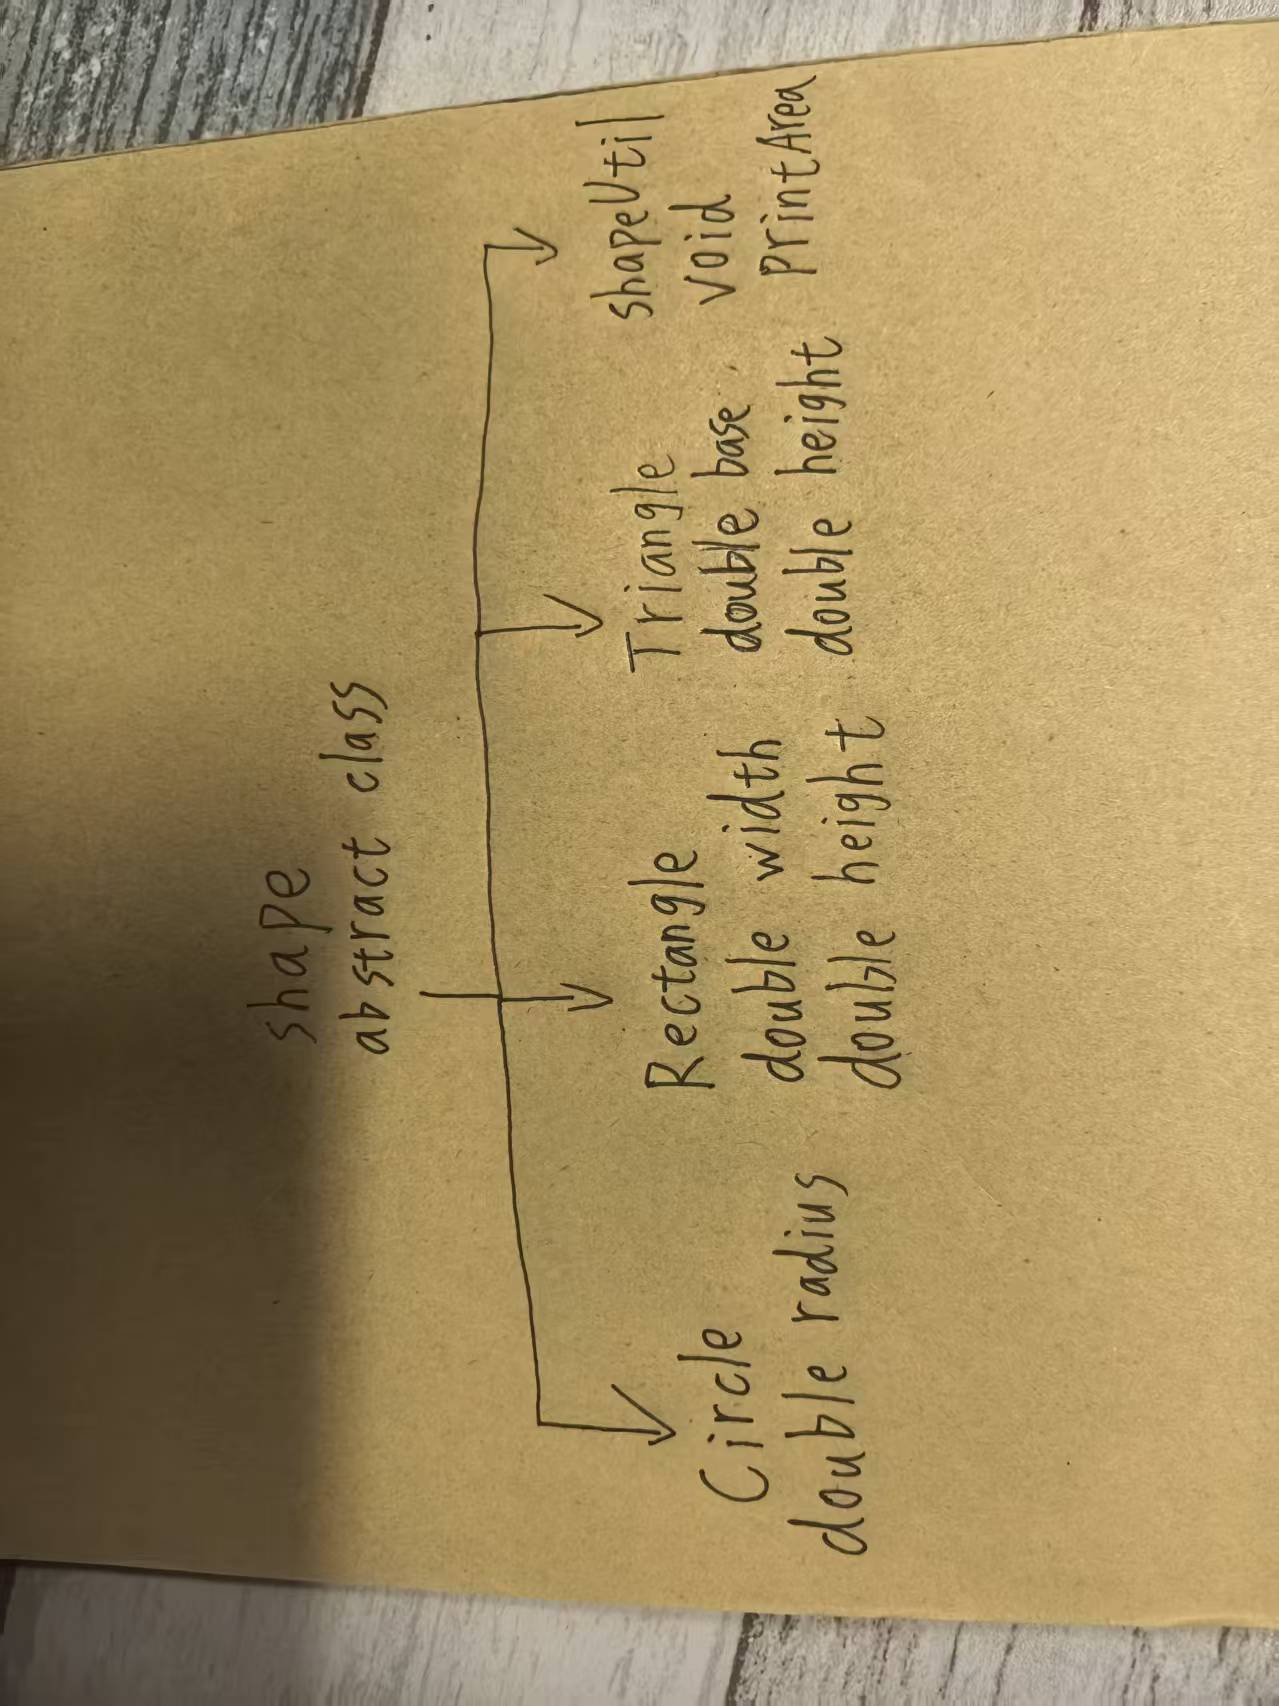 shape
abstract class
Circle
double radius
Rectangle
double width
double height
Triangle
double base
double height
shapeUtil
void
PrintArea